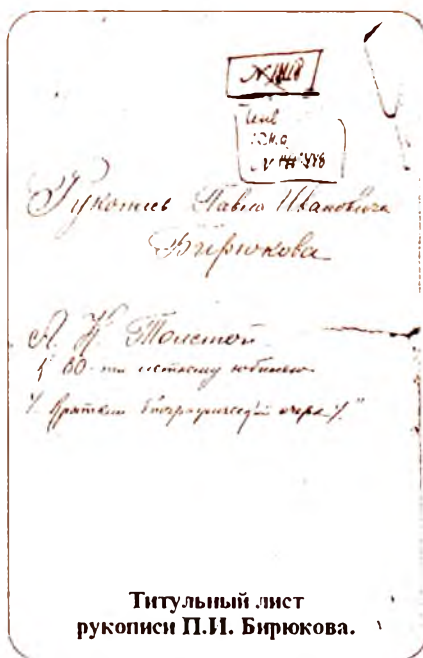 Рукопись Павла Ивановича
Бирюкова
Л. Н. Толстой
К 80-ти летнему юбилею
/. Краткий биографический очерк /."
Титульный лист
рукописи П.И. Бирюкова.